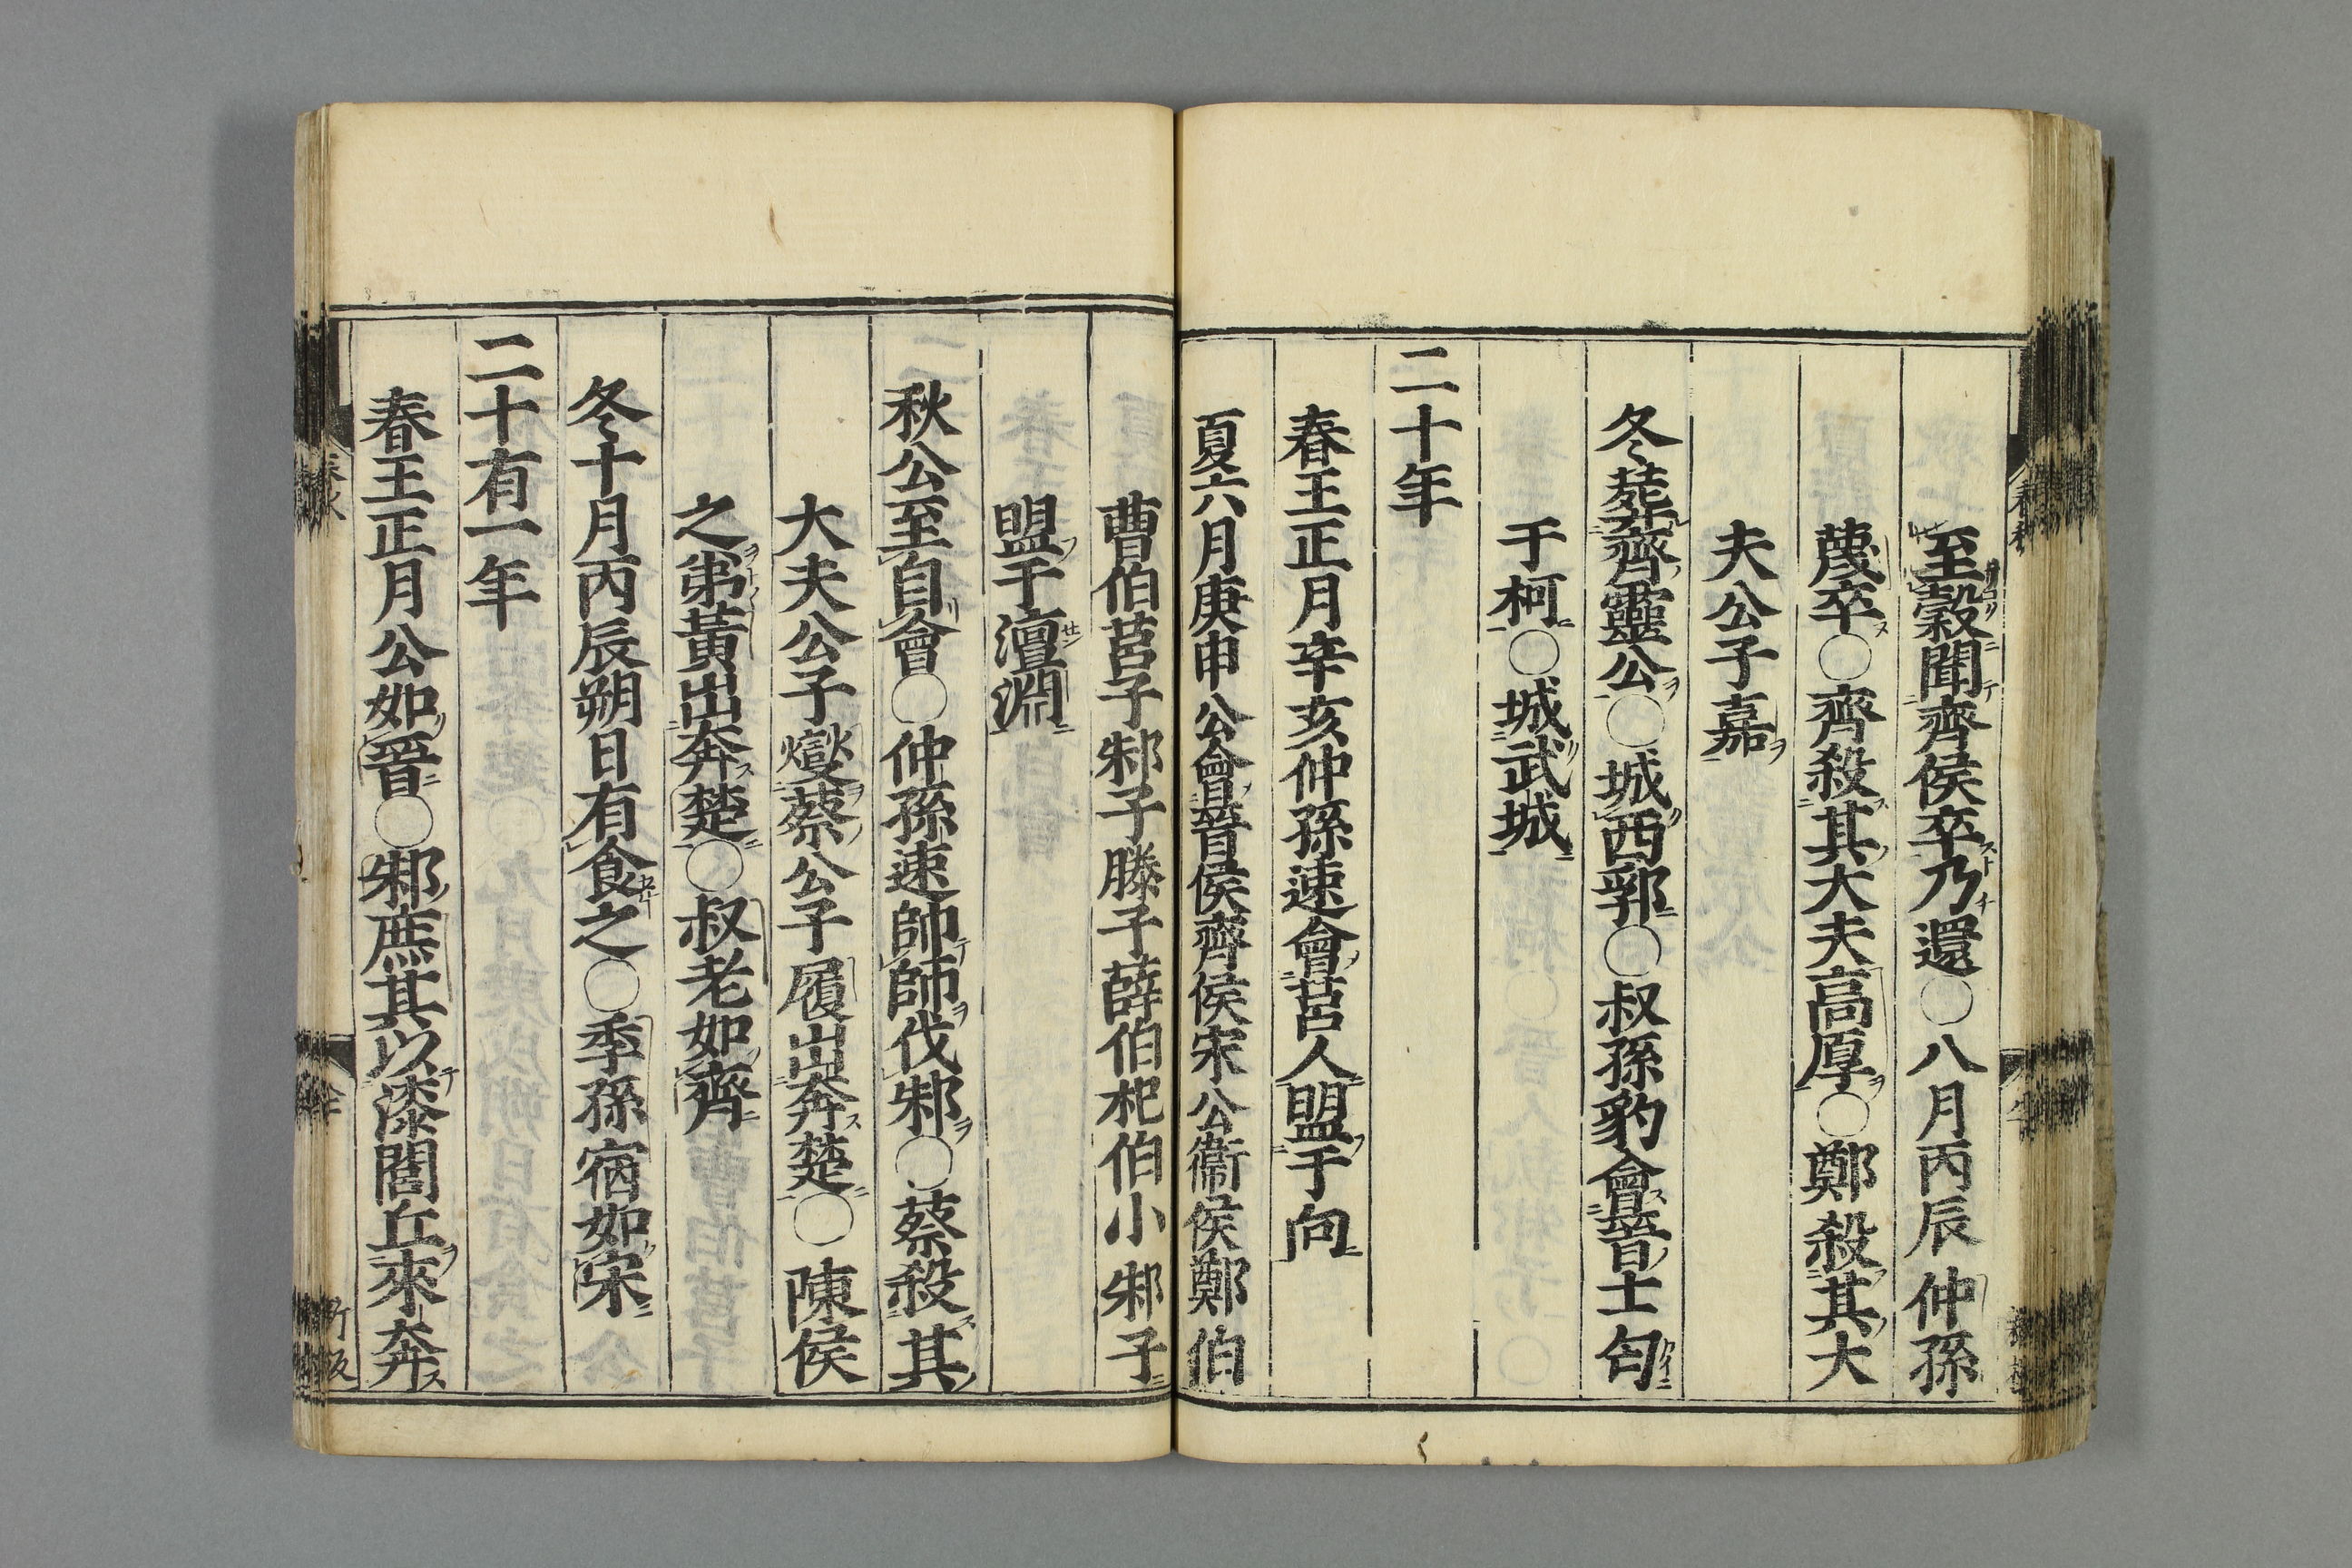 至穀聞齊侯卒乃還○八月丙辰仲孫
蔑卒○齊殺其大夫高厚○鄭殺其大
夫公子嘉
冬葬齊靈公○城西郛○叔孫豹會晉士匄
于柯○城武城
二十年
春王正月辛亥仲孫速會莒人盟于向
夏六月庚申公會晉侯齊侯宋公衞侯鄭伯
曹伯莒子邾子滕子薛伯杞伯小邾子
盟于澶淵
秋公至自會○仲孫速帥師伐邾○蔡殺其
大夫公子燮蔡公子履出奔楚○陳侯
之弟黃出奔楚○叔老如齊
冬十月丙辰朔日有食之○季孫宿如宋
二十有一年
春王正月公如晉○邾庶其以漆閭丘來奔